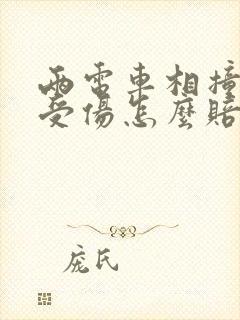 兩電車相撞
受傷怎麼賠
龐氏